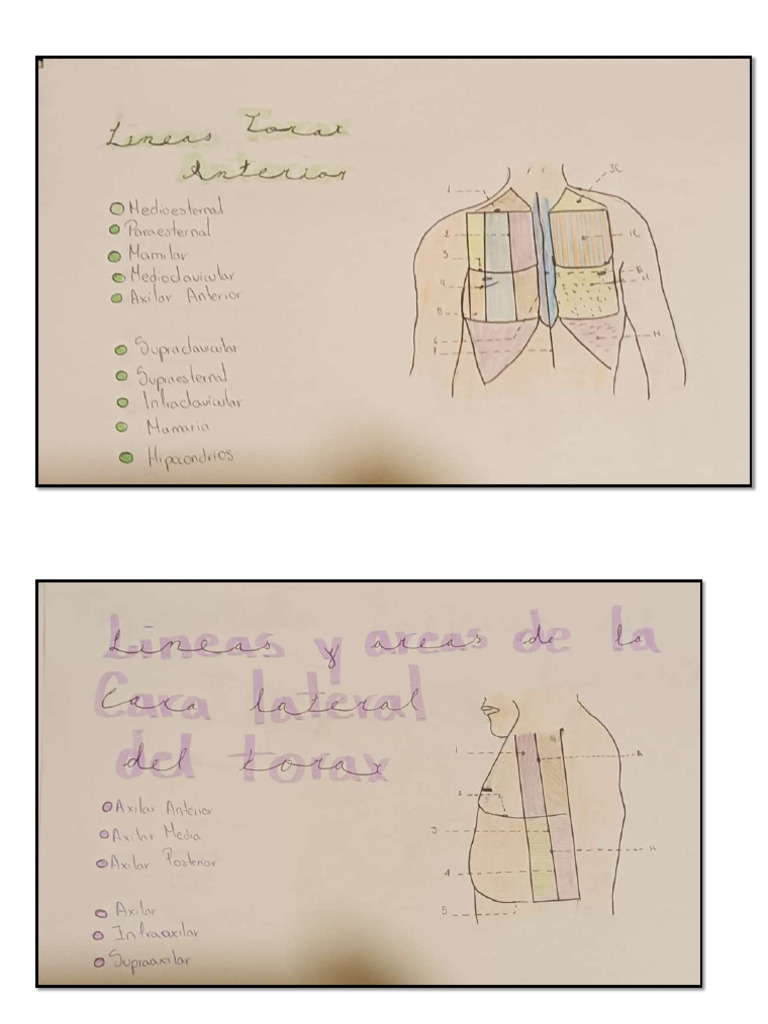 Lineas Torax
Anterior
Medioesternal
Paraesternal
Mamilar
Medioclavicular
Axilar Anterior
Supraclavicular
Supraesternal
Infraclavicular
Mamaria
Hipocondrios
1
2
3
4
5
6
3C
1C
B
H
H
Lineas y areas de la
Cara lateral
del torax
Axilar Anterior
Axilar Media
Axilar Posterior
Axilar
Infraaxilar
Supraaxilar
1
2
3
4
5
A
H